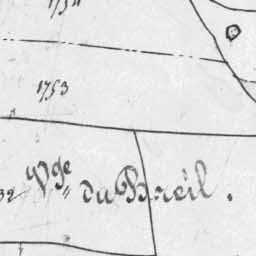 1754
1753
32
Vge du Breil.